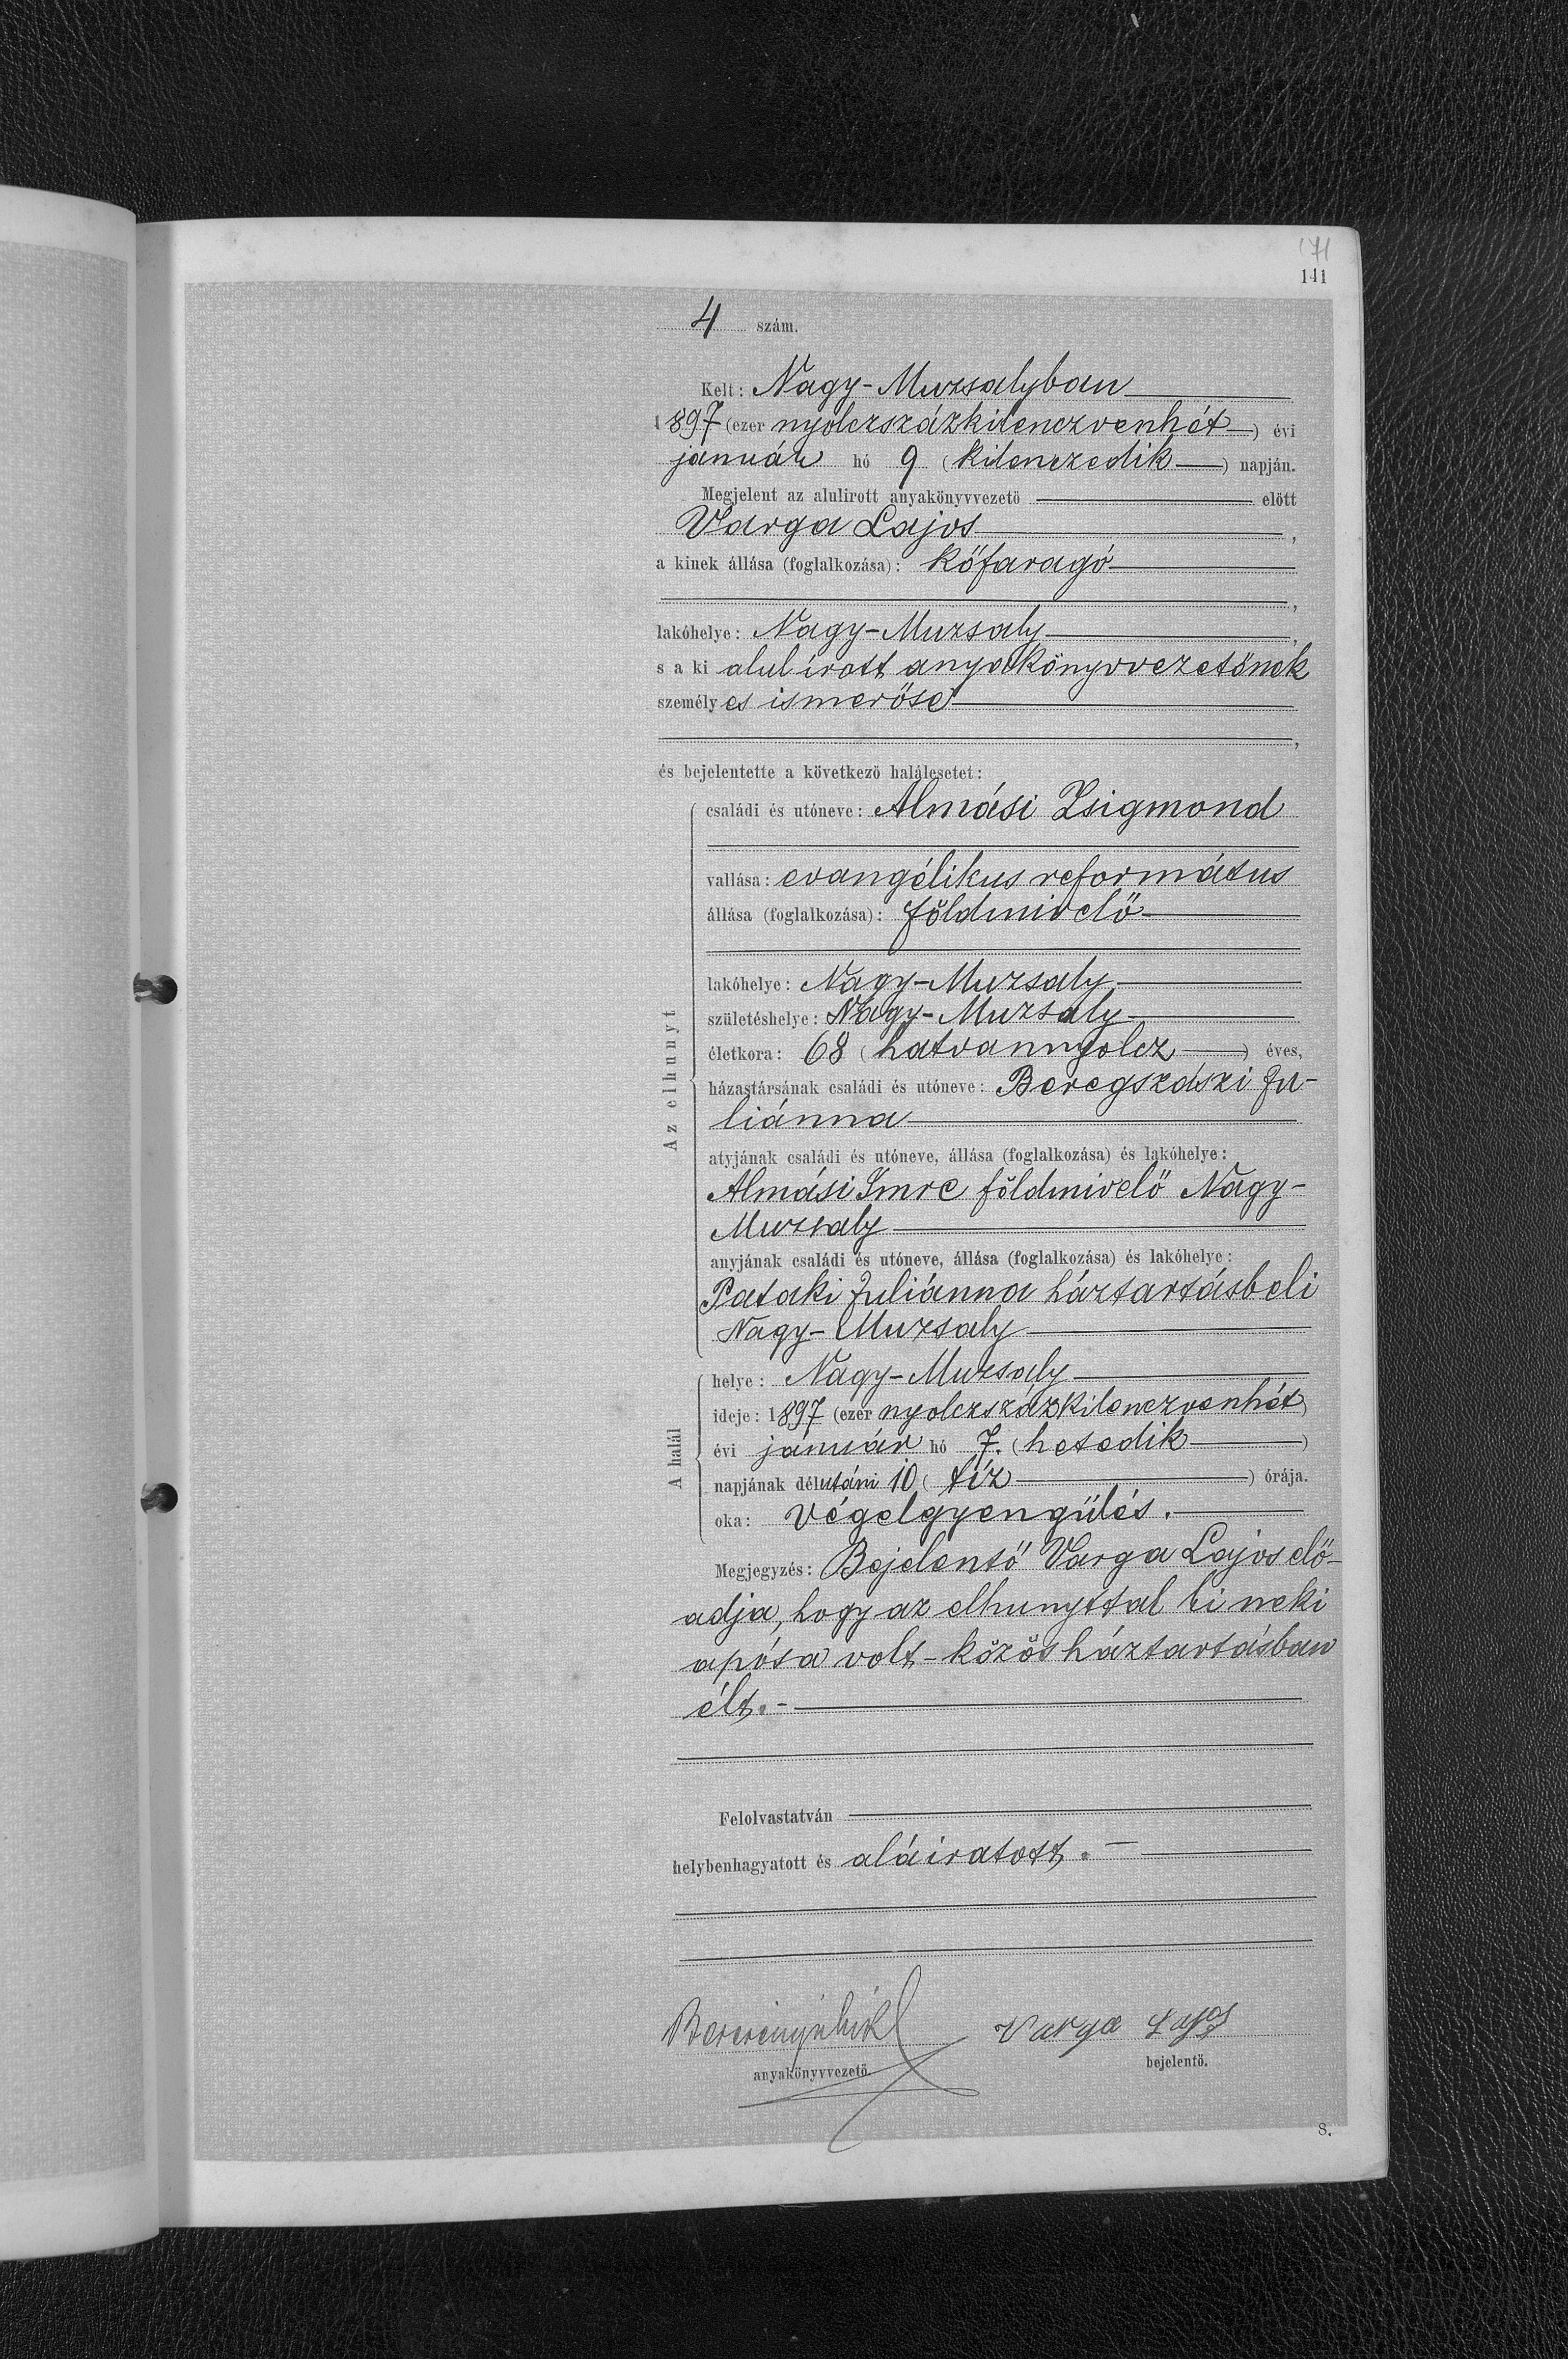 171
141
4 szám.
Kelt: Nagy-Muzsalyban
1897 (ezer nyolczszázkilenczvenhét) évi
január hó 9 (kilenczedik) napján.
Megjelent az alulirott anyakönyvvezető előtt
Varga Lajos,
a kinek állása (foglalkozása): kőfaragó
,
lakóhelye: Nagy-Muzsaly,
s a ki alulírott anyakönyvvezetőnek
személyes ismerőse
,
és bejelentette a következő halálesetet:
Az elhunyt
családi és utóneve: Almási Zsigmond
vallása: evangélikus református
állása (foglalkozása): földmivelő
lakóhelye: Nagy-Muzsaly
születéshelye: Nagy-Muzsaly
életkora: 68 (hatvannyolcz) éves,
házastársának családi és utóneve: Beregszászi Ju-
liánna
atyjának családi és utóneve, állása (foglalkozása) és lakóhelye:
Almási Imre földmivelő Nagy-
Muzsaly
anyjának családi és utóneve, állása (foglalkozása) és lakóhelye:
Pataki Juliánna háztartásbeli
Nagy-Muzsaly
A halál
helye: Nagy-Muzsaly
ideje: 1897 (ezer nyolczszázkilenczvenhét)
évi január hó 7. (hetedik)
napjának délutáni 10 (tíz) órája.
oka: Végelgyengülés.
Megjegyzés: Bejelentő Varga Lajos elő-
adja, hogy az elhunyttal ki neki
apósa volt - közös háztartásban
élt.-
Felolvastatván
helybenhagyatott és aláiratott.-
Varga Lajos
anyakönyvvezető. bejelentő.
8.